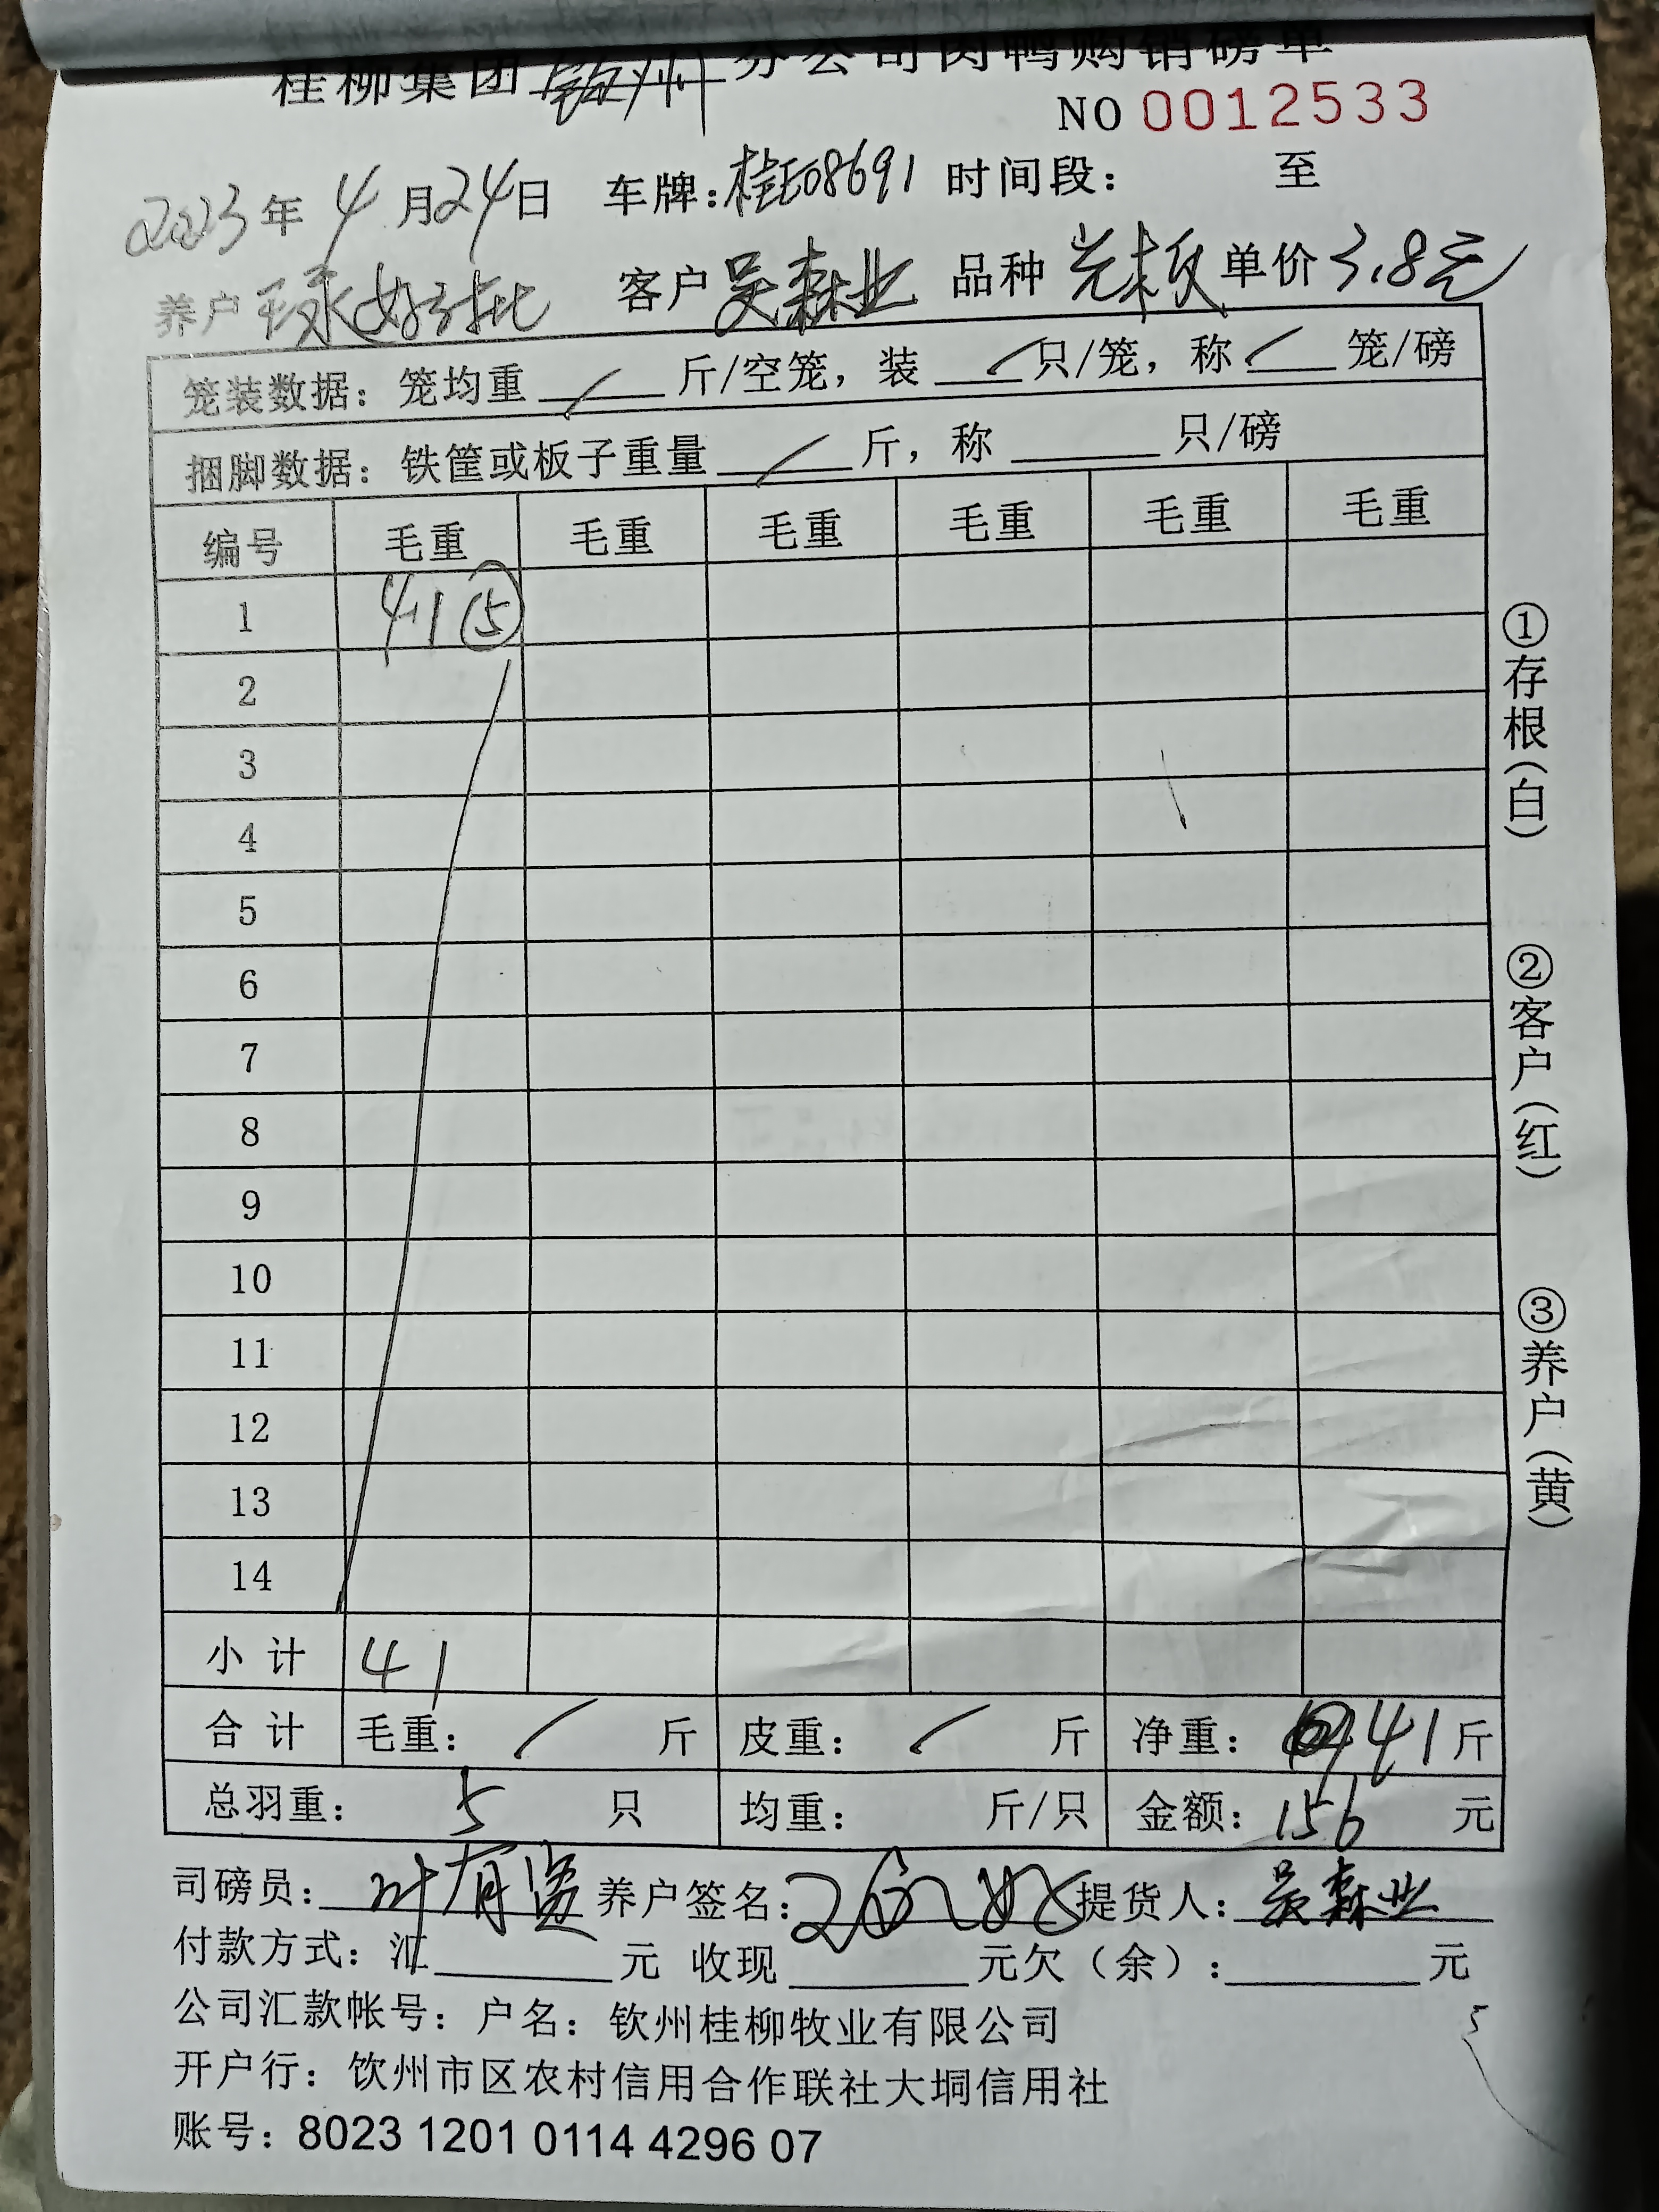 桂柳集团钦州分公司肉鸭购销磅单
NO 0012533
2023年4月24日 车牌:桂E08691 时间段: 至
养户 客户吴森业 品种光板 单价3.8元
笼装数据: 笼均重/斤/空笼, 装/只/笼, 称/笼/磅
捆脚数据: 铁筐或板子重量/斤, 称 只/磅
编号 毛重 毛重 毛重 毛重 毛重 毛重
1 41⑤
2
3
4
5
6
7
8
9
10
11
12
13
14
小计 41
合计 毛重: / 斤 皮重: / 斤 净重: 41斤
总羽重: 5 只 均重: 斤/只 金额: 156 元
司磅员: 叶有 养户签名: 提货人: 吴森业
付款方式: 汇 元 收现 元欠(余): 元
公司汇款帐号: 户名: 钦州桂柳牧业有限公司
开户行: 钦州市区农村信用合作联社大垌信用社
账号: 8023 1201 0114 4296 07
①存根(白)
②客户(红)
③养户(黄)